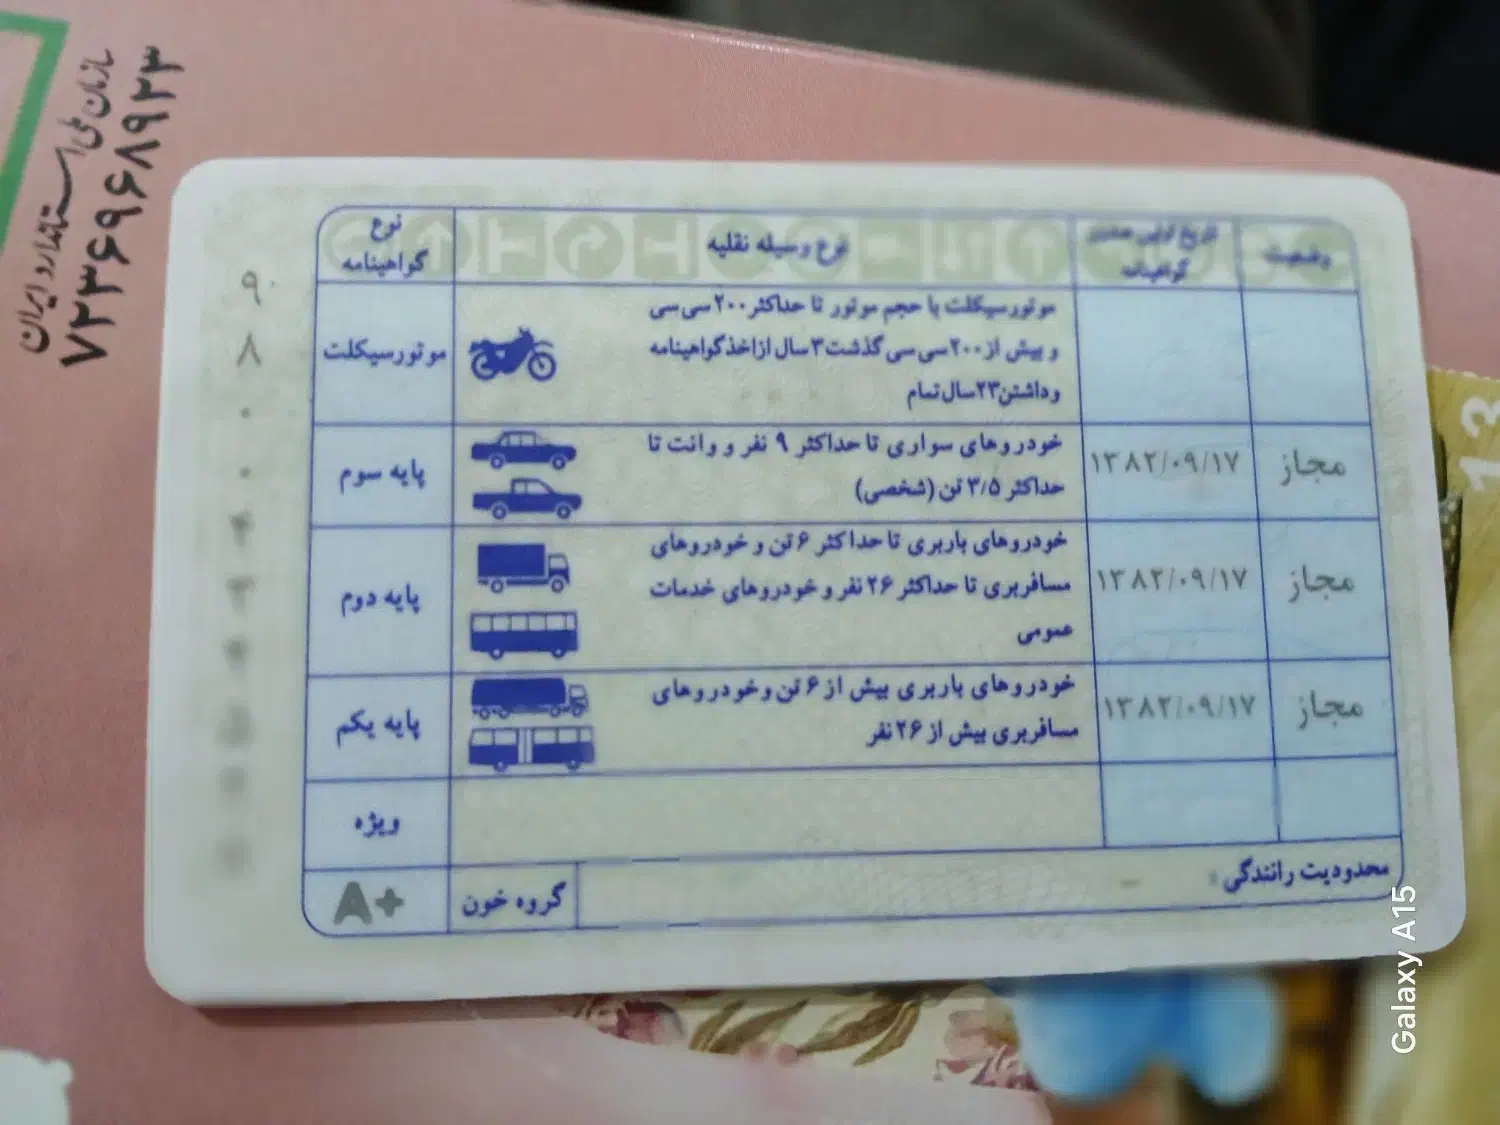 سازمان ملی استاندارد ایران
۷۲۳۶۹۶۸۹۲۳
نوع گواهینامه
نوع وسیله نقلیه
تاریخ اولین صدور گواهینامه
وضعیت
موتورسیکلت
موتورسیکلت با حجم موتور تا حداکثر ۲۰۰ سی سی
و بیش از ۲۰۰ سی سی گذشت ۳ سال از اخذ گواهینامه
و داشتن ۲۳ سال تمام
پایه سوم
خودروهای سواری تا حداکثر ۹ نفر و وانت تا
حداکثر ۳/۵ تن (شخصی)
۱۳۸۲/۰۹/۱۷
مجاز
پایه دوم
خودروهای باربری تا حداکثر ۶ تن و خودروهای
مسافربری تا حداکثر ۲۶ نفر و خودروهای خدمات
عمومی
۱۳۸۲/۰۹/۱۷
مجاز
پایه یکم
خودروهای باربری بیش از ۶ تن و خودروهای
مسافربری بیش از ۲۶ نفر
۱۳۸۲/۰۹/۱۷
مجاز
ویژه
محدودیت رانندگی: -
گروه خون
A+
Galaxy A15
13